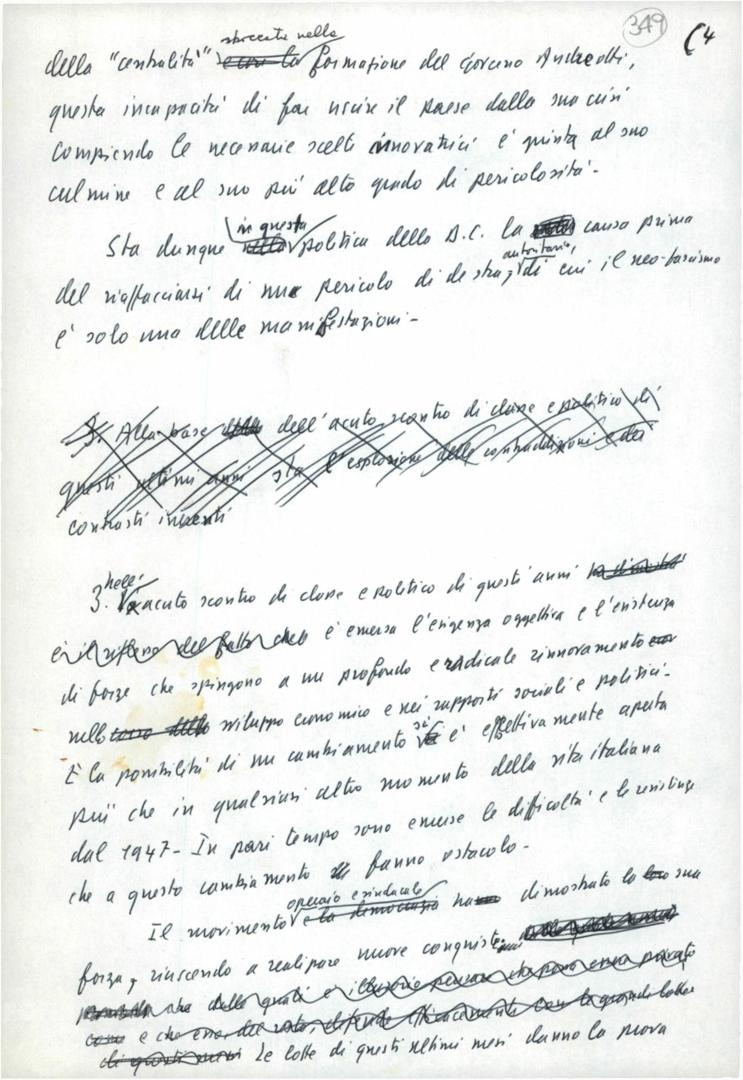 349
(4
sboccate nella
della "centralità" e con la formazione del Governo Andreotti,
questa incapacità di far uscire il paese dalla sua crisi
compiendo le necessarie scelte innovatrici è giunta al suo
culmine e al suo più alto grado di pericolosità.
in questa
Sta dunque nella politica della D.C. la causa prima
autoritario,
del riaffacciarsi di un pericolo di destra, di cui il neo-fascismo
è solo una delle manifestazioni.
3. Alla base dell'acuto scontro di classe e politico di
questi ultimi anni sta l'esplosione delle contraddizioni e dei
contrasti inerenti
nell'
3. acuto scontro di classe e politico di questi anni
è il riflesso del fatto che è emersa l'esigenza oggettiva e l'esistenza
di forze che spingono a un profondo e radicale rinnovamento
nello sviluppo economico e nei rapporti sociali e politici.
si
E la possibilità di un cambiamento è effettivamente aperta
più che in qualsiasi altro momento della vita italiana
dal 1947 - In pari tempo sono emerse le difficoltà e le resistenze
che a questo cambiamento fanno ostacolo.
operaio e sindacale
Il movimento e la democrazia ha dimostrato la sua
forza, riuscendo a realizzare nuove conquiste
una delle quali è
e che
Le lotte di questi ultimi mesi danno la prova